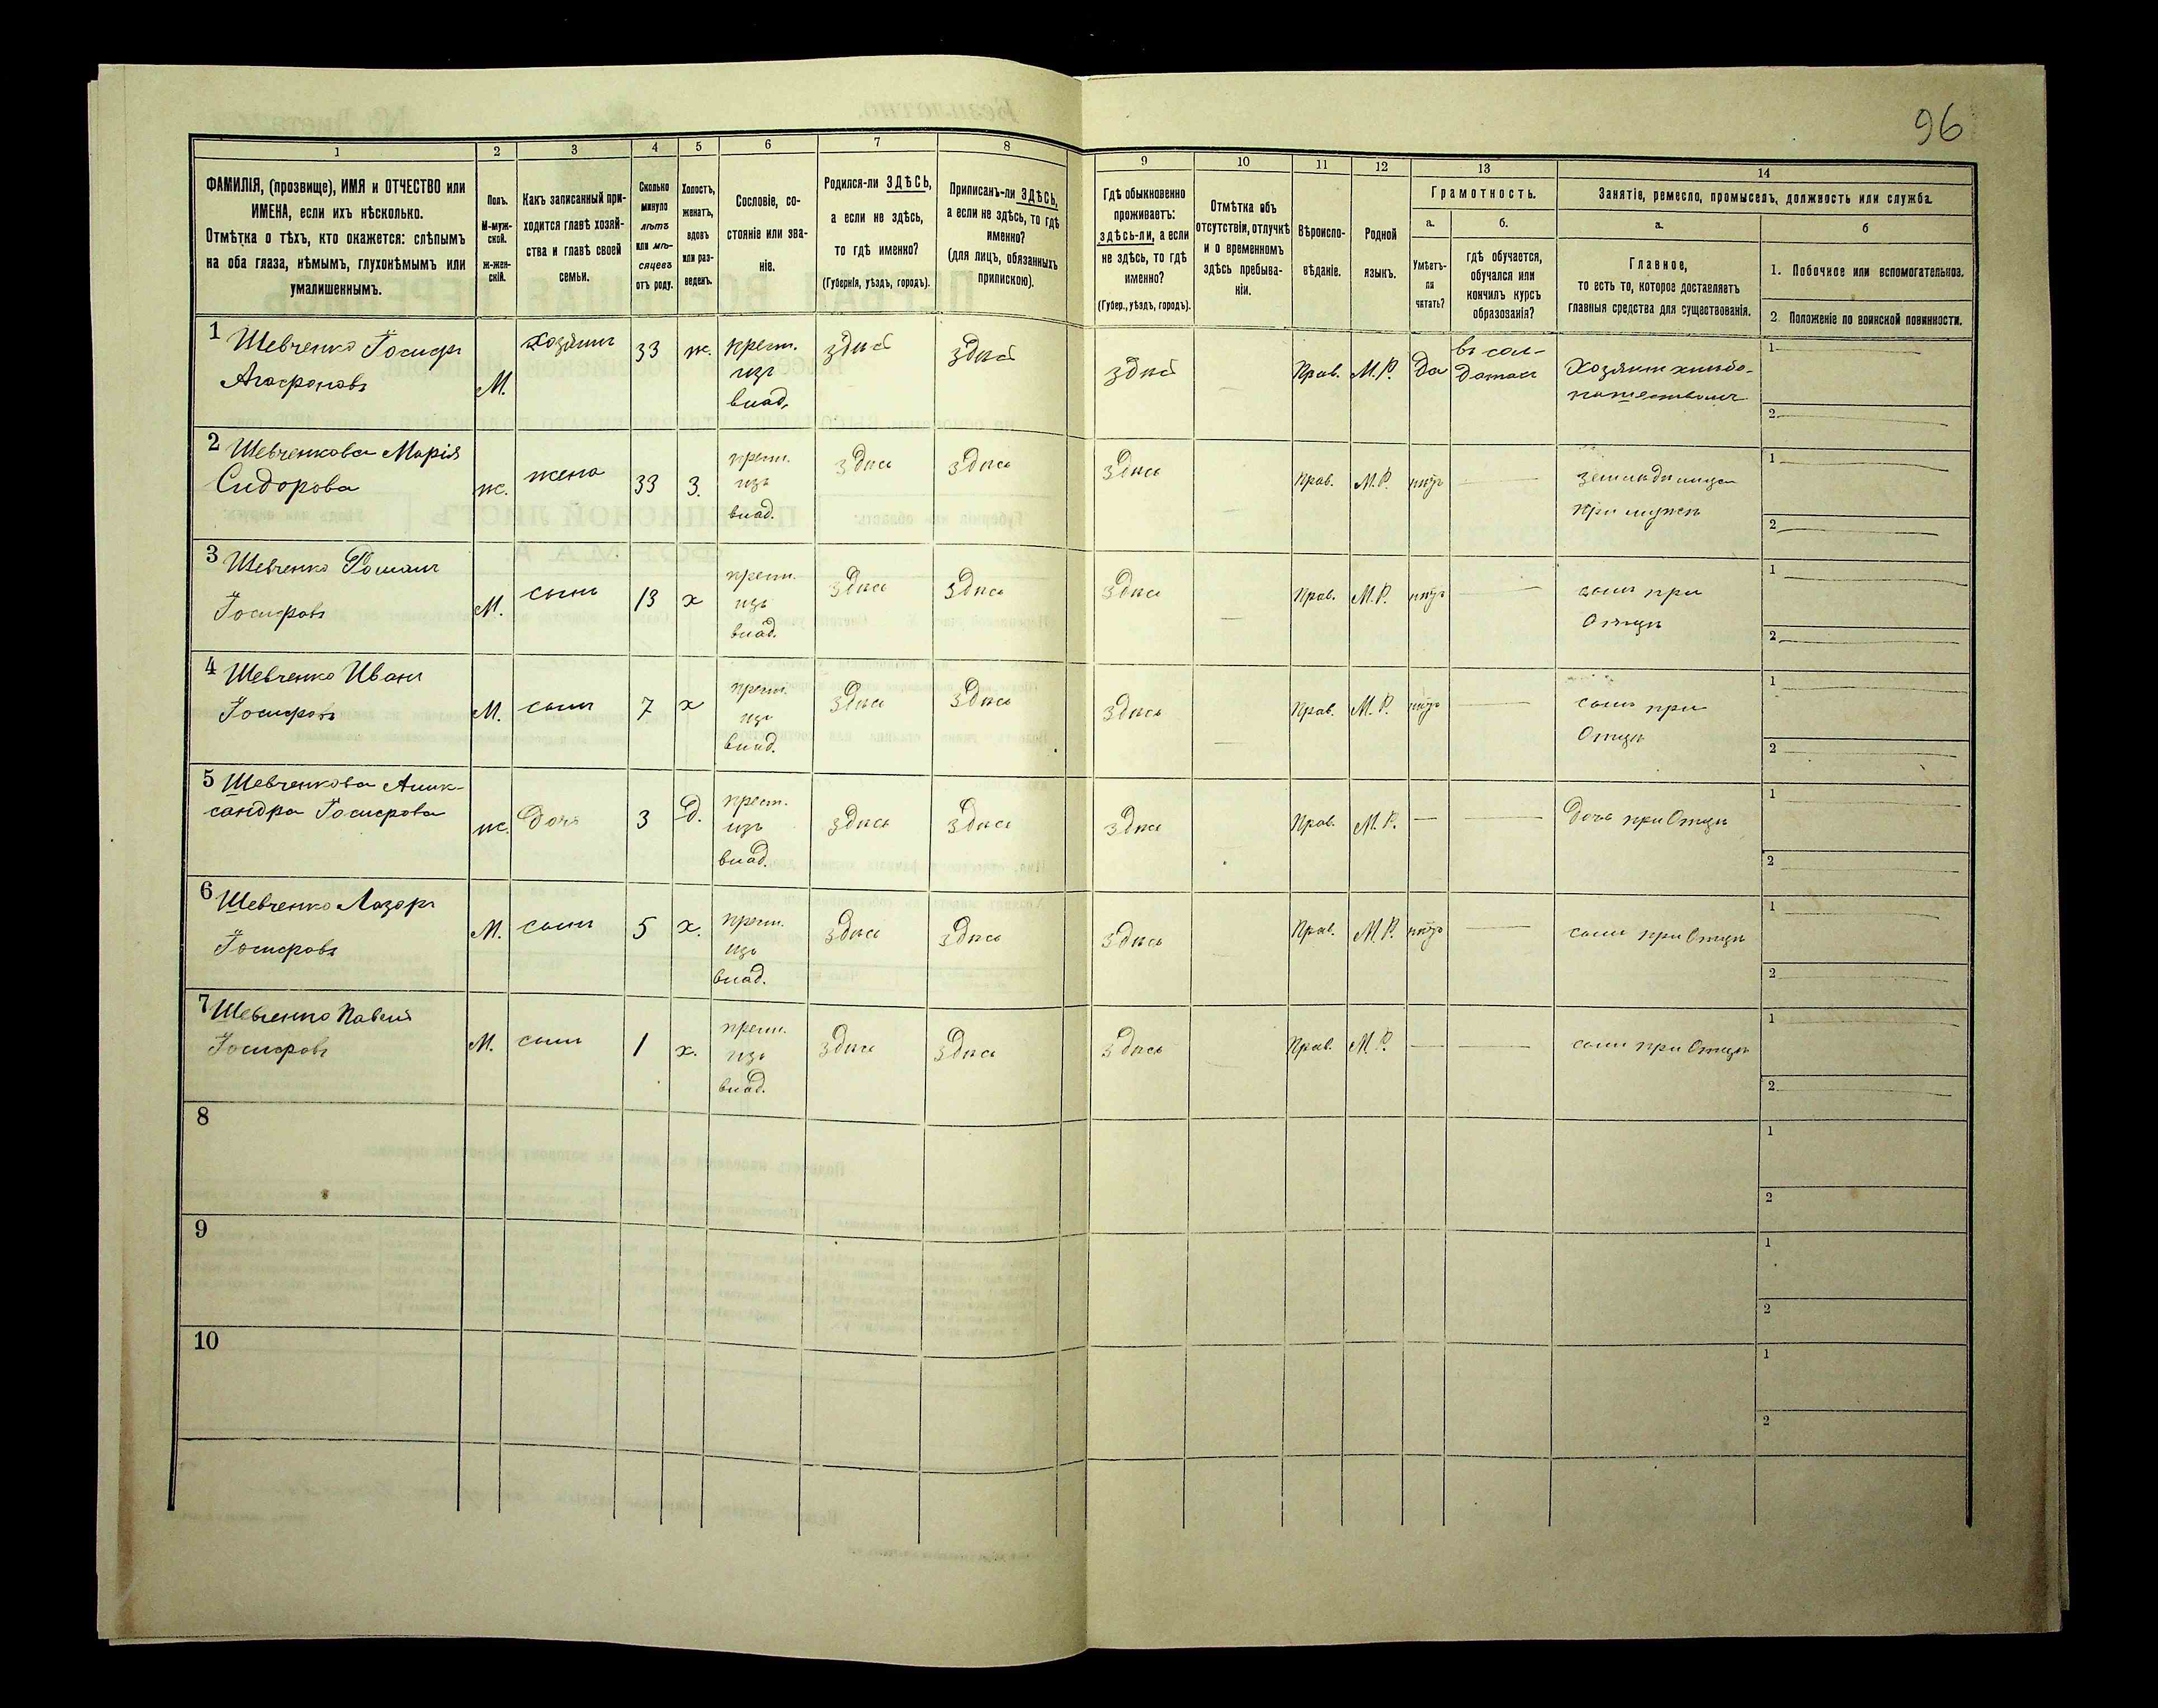 96
1 2 3 4 5 6 7 8 9 10 11 12 13 14
ФАМИЛІЯ, (прозвище), ИМЯ и ОТЧЕСТВО или
ИМЕНА, если ихъ нѣсколько.
Отмѣтка о тѣхъ, кто окажется: слѣпымъ
на оба глаза, нѣмымъ, глухонѣмымъ или
умалишеннымъ.
Полъ.
М-муж-
ской.
Ж-жен-
скій.
Какъ записанный при-
ходится главѣ хозяй-
ства и главѣ своей
семьи.
Сколько
минуло
лѣтъ
или мѣ-
сяцевъ
отъ роду.
Холостъ,
женатъ,
вдовъ
или раз-
веденъ.
Сословіе, со-
стояніе или зва-
ніе.
Родился-ли ЗДѢСЬ,
а если не здѣсь,
то гдѣ именно?
(Губернія, уѣздъ, городъ).
Приписанъ-ли ЗДѢСЬ,
а если не здѣсь, то гдѣ
именно?
(для лицъ, обязанныхъ
припискою).
Гдѣ обыкновенно
проживаетъ:
здѣсь-ли, а если
не здѣсь, то гдѣ
именно?
(Губер., уѣздъ, городъ).
Отмѣтка объ
отсутствіи, отлучкѣ
и о временномъ
здѣсь пребыва-
ніи.
Вѣроиспо-
вѣданіе.
Родной
языкъ.
Грамотность.
а.
Умѣетъ-
ли
читать?
б.
гдѣ обучается,
обучался или
кончилъ курсъ
образованія?
Занятіе, ремесло, промыселъ, должность или служба.
а.
Главное,
то есть то, которое доставляетъ
главныя средства для существованія.
б
1. Побочное или вспомогательное.
2. Положеніе по воинской повинности.
1 Шевченко Іосифъ
Агафоновъ
М.
Хозяинъ
33
ж.
крест.
изъ
влад.
здѣсь
здѣсь
здѣсь
Прав.
М.Р.
Да
въ сол-
датахъ
Хозяинъ хлѣбо-
пашествомъ
1
2
2 Шевченкова Марія
Сидорова
ж.
жена
33
З.
крест.
изъ
влад.
здѣсь
здѣсь
здѣсь
Прав.
М.Р.
нѣтъ
земледѣлица
при мужѣ
1
2
3 Шевченко Романъ
Іосифовъ
М.
сынъ
13
х
крест.
изъ
влад.
здѣсь
здѣсь
здѣсь
Прав.
М.Р.
нѣтъ
сынъ при
Отцѣ
1
2
4 Шевченко Иванъ
Іосифовъ
М.
сынъ
7
х
крест.
изъ
влад.
здѣсь
здѣсь
здѣсь
Прав.
М.Р.
нѣтъ
сынъ при
Отцѣ
1
2
5 Шевченкова Алек-
сандра Іосифова
ж.
Дочь
3
д.
крест.
изъ
влад.
здѣсь
здѣсь
здѣсь
Прав.
М.Р.
Дочь при Отцѣ
1
2
6 Шевченко Лазарь
Іосифовъ
М.
сынъ
5
х.
крест.
изъ
влад.
здѣсь
здѣсь
здѣсь
Прав.
М.Р.
нѣтъ
сынъ при Отцѣ
1
2
7 Шевченко Павелъ
Іосифовъ
М.
сынъ
1
х.
крест.
изъ
влад.
здѣсь
здѣсь
здѣсь
Прав.
М.Р.
сынъ при Отцѣ
1
2
8
1
2
9
1
2
10
1
2